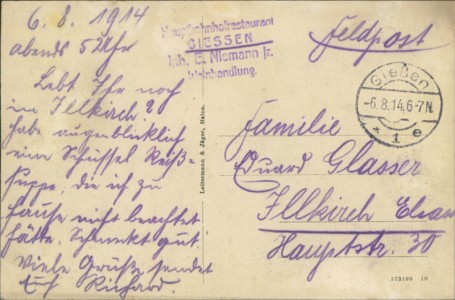 6.8.1914
abends 5 Uhr
Lebt Ihr noch
in Illkirch?
habe augenblicklich
eine Schüssel Reis-
suppe, die ich zu
Hause nicht beachtet
hätte. Schmeckt gut.
Viele Grüße sendet
Euch Richard.
Hauptbahnhofrestaurant
GIESSEN
Inh. E. Niemann jr.
Weinhandlung.
Leitermann & Jäger, Mainz.
Feldpost
Gießen
-6.8.14.6-7N.
* 1 e
Familie
Eduard Glasser
Illkirch Elsass
Hauptstr. 30